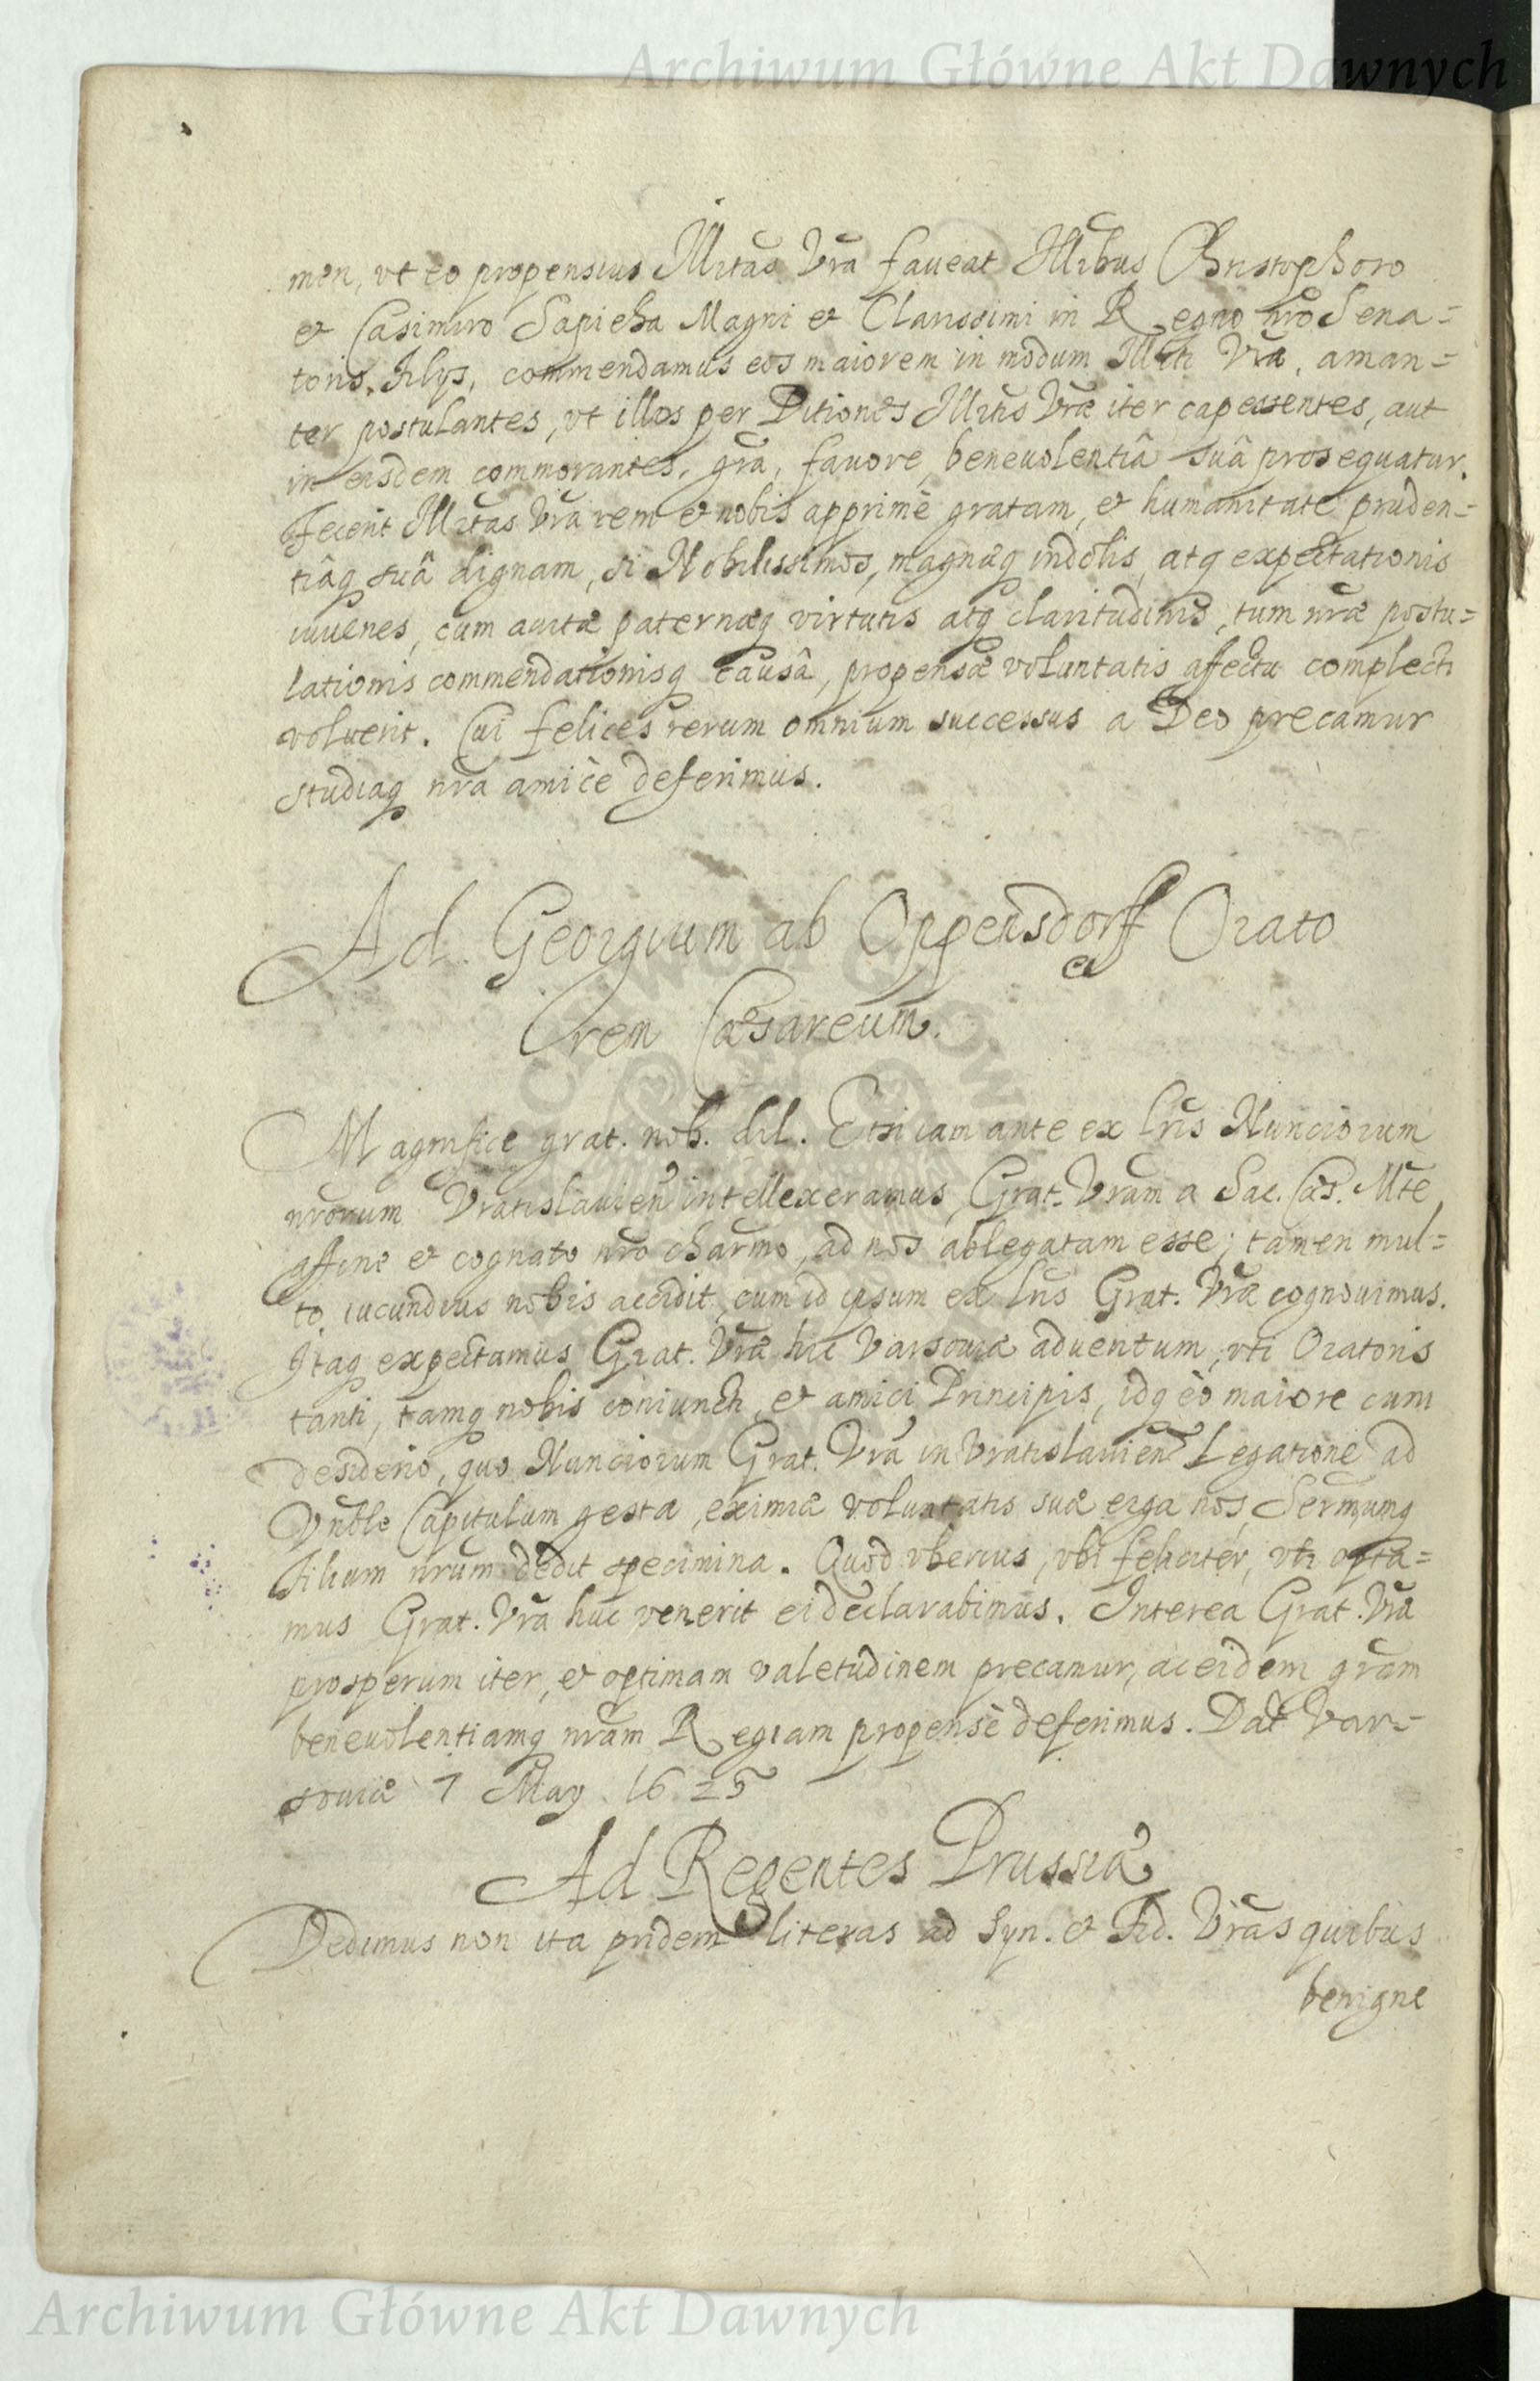 Archiwum Główne Akt Dawnych
men, vt eo propensius Illitas Vra faueat Illibus Christophoro
et Casimiro Sapieha Magni et Clarissimi in Regno nro Sena=
toris, filys, commendamus eos maiorem in modum Illti Vrae, aman=
ter postulantes, vt illos per Ditiones Illitis Vrae iter capessentes, aut
in eisdem commorantes, gra, fauore, beneuolentiâ suâ prosequatur.
Fecerit Illitas Vra rem et nobis apprimè gratam, et humanitate pruden=
tiâq suâ dignam, si Nobilissimos, magnæq indolis, atq expectationis
iuuenes, cum auitæ paternæq virtutis atq claritudinis, tum nræ postu=
lationis commendationisq causâ, propensæ voluntatis affectu complecti
voluerit. Cui felices rerum omnium successus a Deo precamur
studiaq nra amicè deferimus.
Ad Georgium ab Oppensdorff Orato
rem Cæsareum.
Magnifice grat. nob. dil. Etsi iam ante ex lris Nunciorum
nrorum Vratislauien intellexeramus, Grat. Vram a Sac. Cæs. Mte,
affine et cognato nro charmo, ad nos ablegatam esse; tamen mul=
to iucundius nobis accidit, cum id ipsum ex lris Grat. Vræ cognouimus.
Itaq expectamus Grat. Vræ huc Varsouiæ aduentum, vti Oratoris
tanti, tamq nobis coniuncti, et amici Principis, idq eò maiore cum
desiderio, quo Nunciorum Grat. Vra in Vratislauien Legatione ad
Vnble Capitulum gesta, eximiæ voluntatis suæ erga nos, Sermumq
filium nrum dedit specimina. Quod vberius, vbi feliciter, vti opta=
mus Grat. Vra huc venerit ei declarabimus. Interea Grat. Vræ
prosperum iter, et optimam valetudinem precamur, ac eidem gram
beneuolentiamq nram Regiam propensè deferimus. Dat Var=
souiæ 7 May. 1625
Ad Regentes Prussiæ
Dedimus non ita pridem literas ad Syn. et Fid. Vras quibus
benigne
Archiwum Główne Akt Dawnych